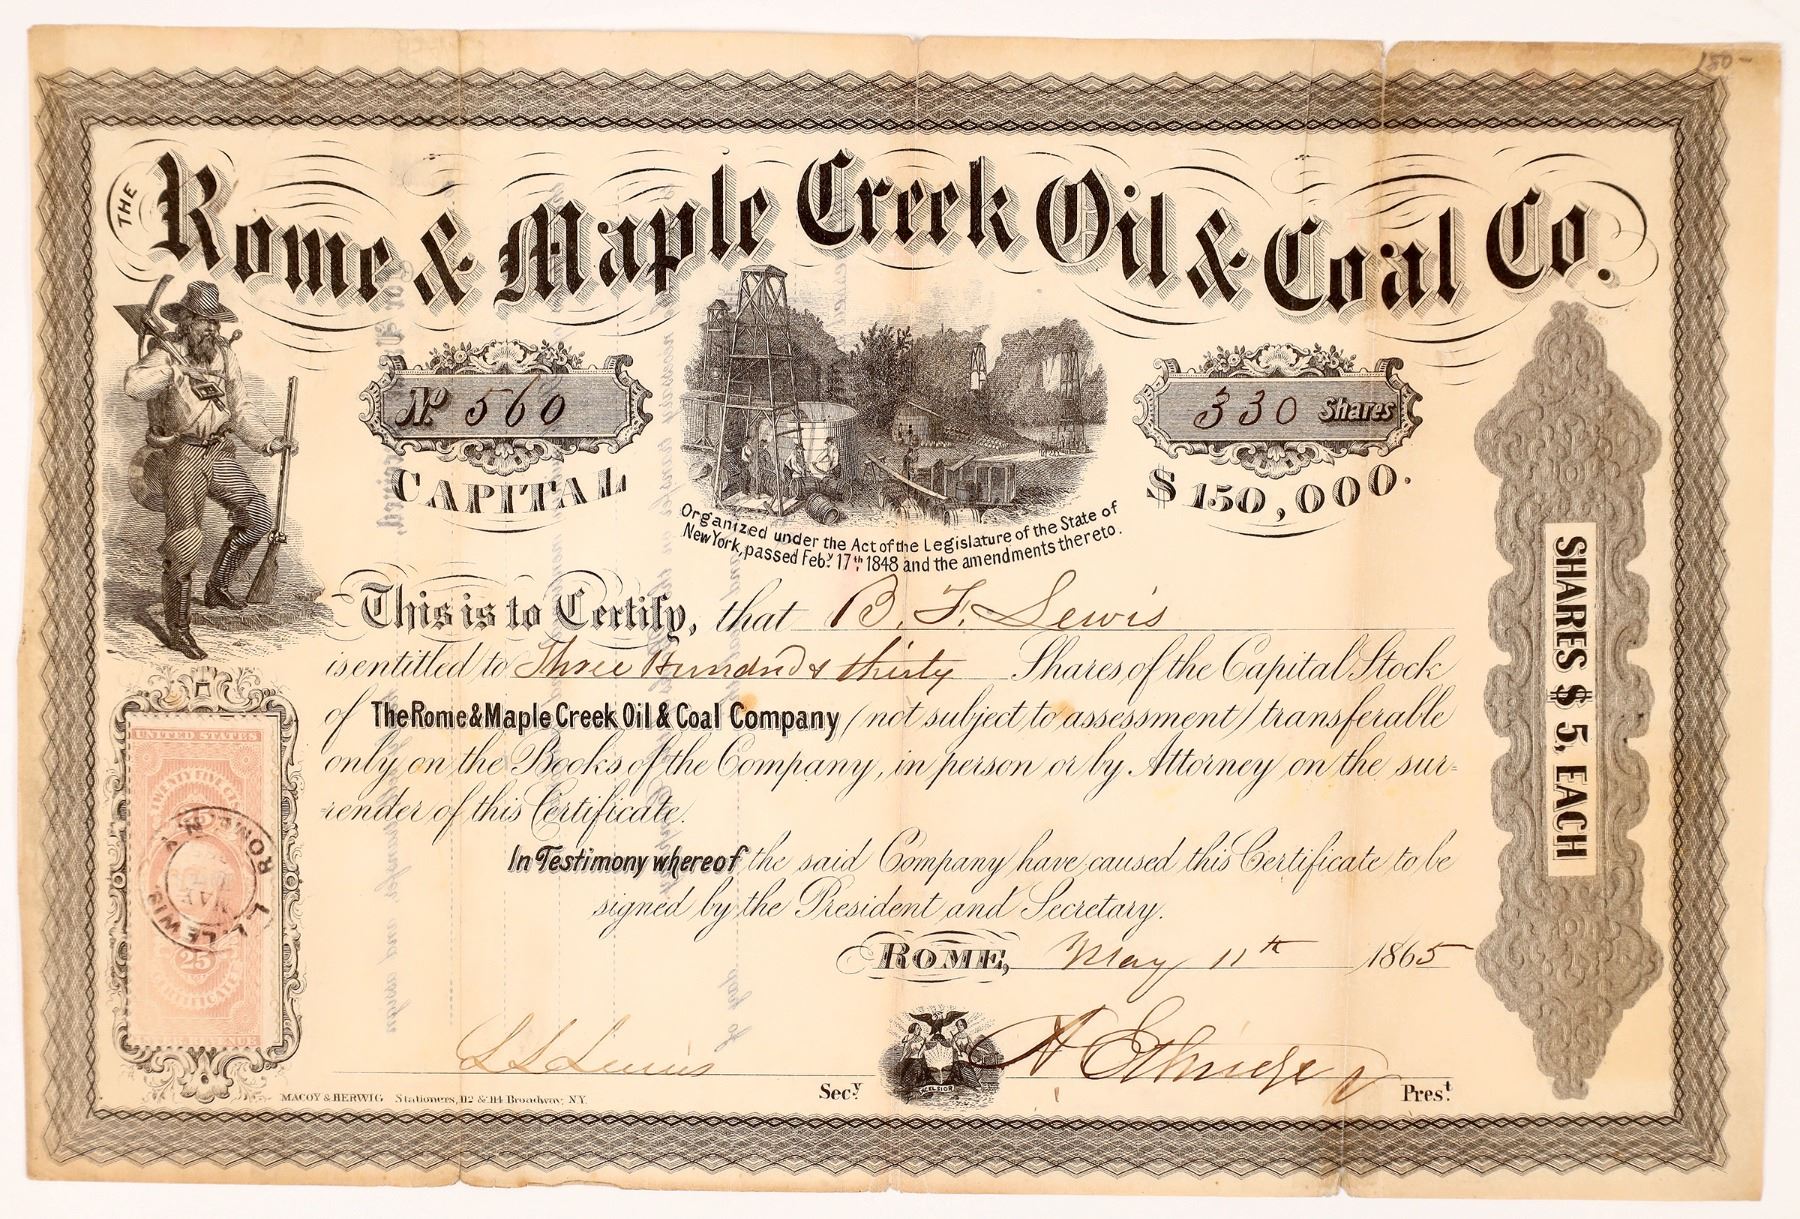 180-
THE
Rome & Maple Creek Oil & Coal Co.
No 560
330 Shares
CAPITAL
$150,000.
Organized under the Act of the Legislature of the State of
New York, passed Feby. 17th, 1848 and the amendments thereto.
This is to Certify, that B. F. Lewis
is entitled to Three Hundred & thirty Shares of the Capital Stock
of The Rome & Maple Creek Oil & Coal Company (not subject to assessment) transferable
only on the Books of the Company, in person or by Attorney on the sur-
-render of this Certificate.
In Testimony whereof the said Company have caused this Certificate to be
signed by the President and Secretary.
ROME, May 11th 1865
SHARES $5, EACH
UNITED STATES
TWENTY FIVE CTS
ROME N.Y.
MAY
L. LEWIS
25
CERTIFICATE
INTER. REVENUE
Lewis Secy.
EXCELSIOR
A Ethridge Prest.
MACOY & HERWIG Stationers, 112 & 114 Broadway, NY.